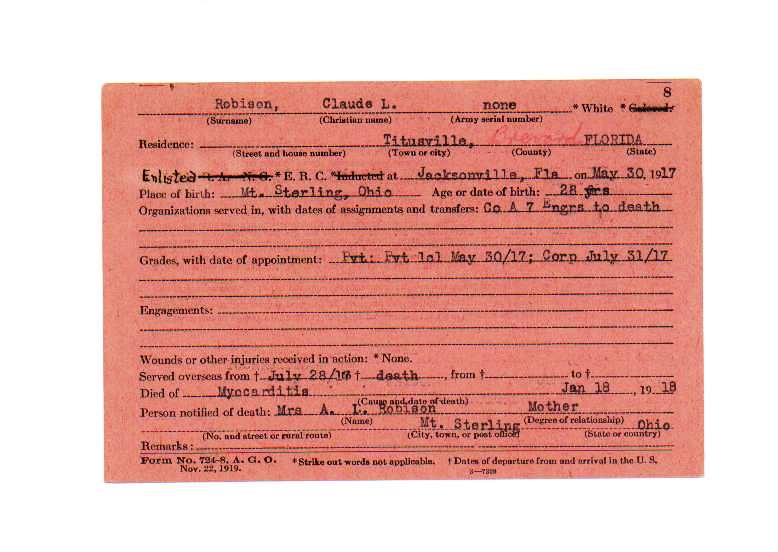 8
Robison, Claude L. none * White * Colored.
(Surname) (Christian name) (Army serial number)
Residence: Titusville, Brevard FLORIDA
(Street and house number) (Town or city) (County) (State)
Enlisted R. A. N. G. * E. R. C. *Inducted at Jacksonville, Fla on May 30, 1917
Place of birth: Mt. Sterling, Ohio Age or date of birth: 28 yrs
Organizations served in, with dates of assignments and transfers: Co A 7 Engrs to death
Grades, with date of appointment: Pvt: Pvt 1cl May 30/17; Corp July 31/17
Engagements:
Wounds or other injuries received in action: * None.
Served overseas from † July 28/17 † death, from † to †
Died of Myocarditis Jan 18, 19 18
(Cause and date of death)
Person notified of death: Mrs A. L. Robison Mother
(Name) (Degree of relationship)
Mt. Sterling Ohio
(No. and street or rural route) (City, town, or post office) (State or country)
Remarks:
Form No. 724-8, A. G. O. *Strike out words not applicable. † Dates of departure from and arrival in the U. S.
Nov. 22, 1919. 3—7339